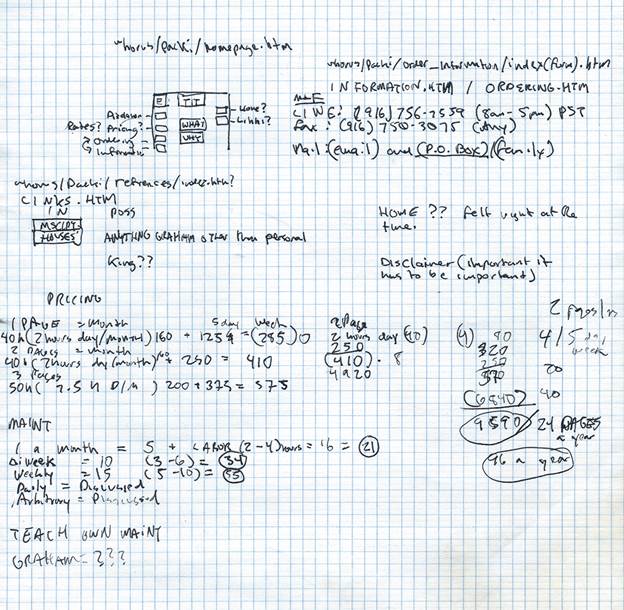 whorus/packi/homepage.htm
whorus/packi/order_information/index(furm).htm
INFORMATION.HTM / ORDERING.HTM
TIT
Home?
Rates? Pricing?
Links?
WHAT
Ordering
WHY
LINE: (916) 756-7559 (8am-5pm) PST
Fax: (916) 750-3075 (Any)
Mail: (Email) and (P.O. Box)/(family)
LINKS.HTM
IN
POSS
HOUSES
ANYTHING GRAHAM other than personal
King??
HOME ?? Felt right at the
time.
Disclaimer (important it
has to be important)
PRICING
1 PAGE = month
5day
week
40h (2 hours day/month) 160 + 125 = (285)
2 PAGES = month
40h (2 hours day/month) 160 + 250 = 410
3 Pages
50h ( 2.5 h D/M ) 200 + 375 = 575
2 Page
2 hours day (40)
250
(410) . 8
(4) 80
320
250
570
(6840)
9590
4/5 day
week
20
40
24 PAGES
a year
96 a year
MAINT
1 a month = 5 + LABOR (2-4) hours = 16 = 21
Biweek = 10 (3-6) = 34
Weekly = 15 (5-10) = 55
Daily = Discussed
Arbitrary = Discussed
TEACH OWN MAINT
GRAHAM = ???